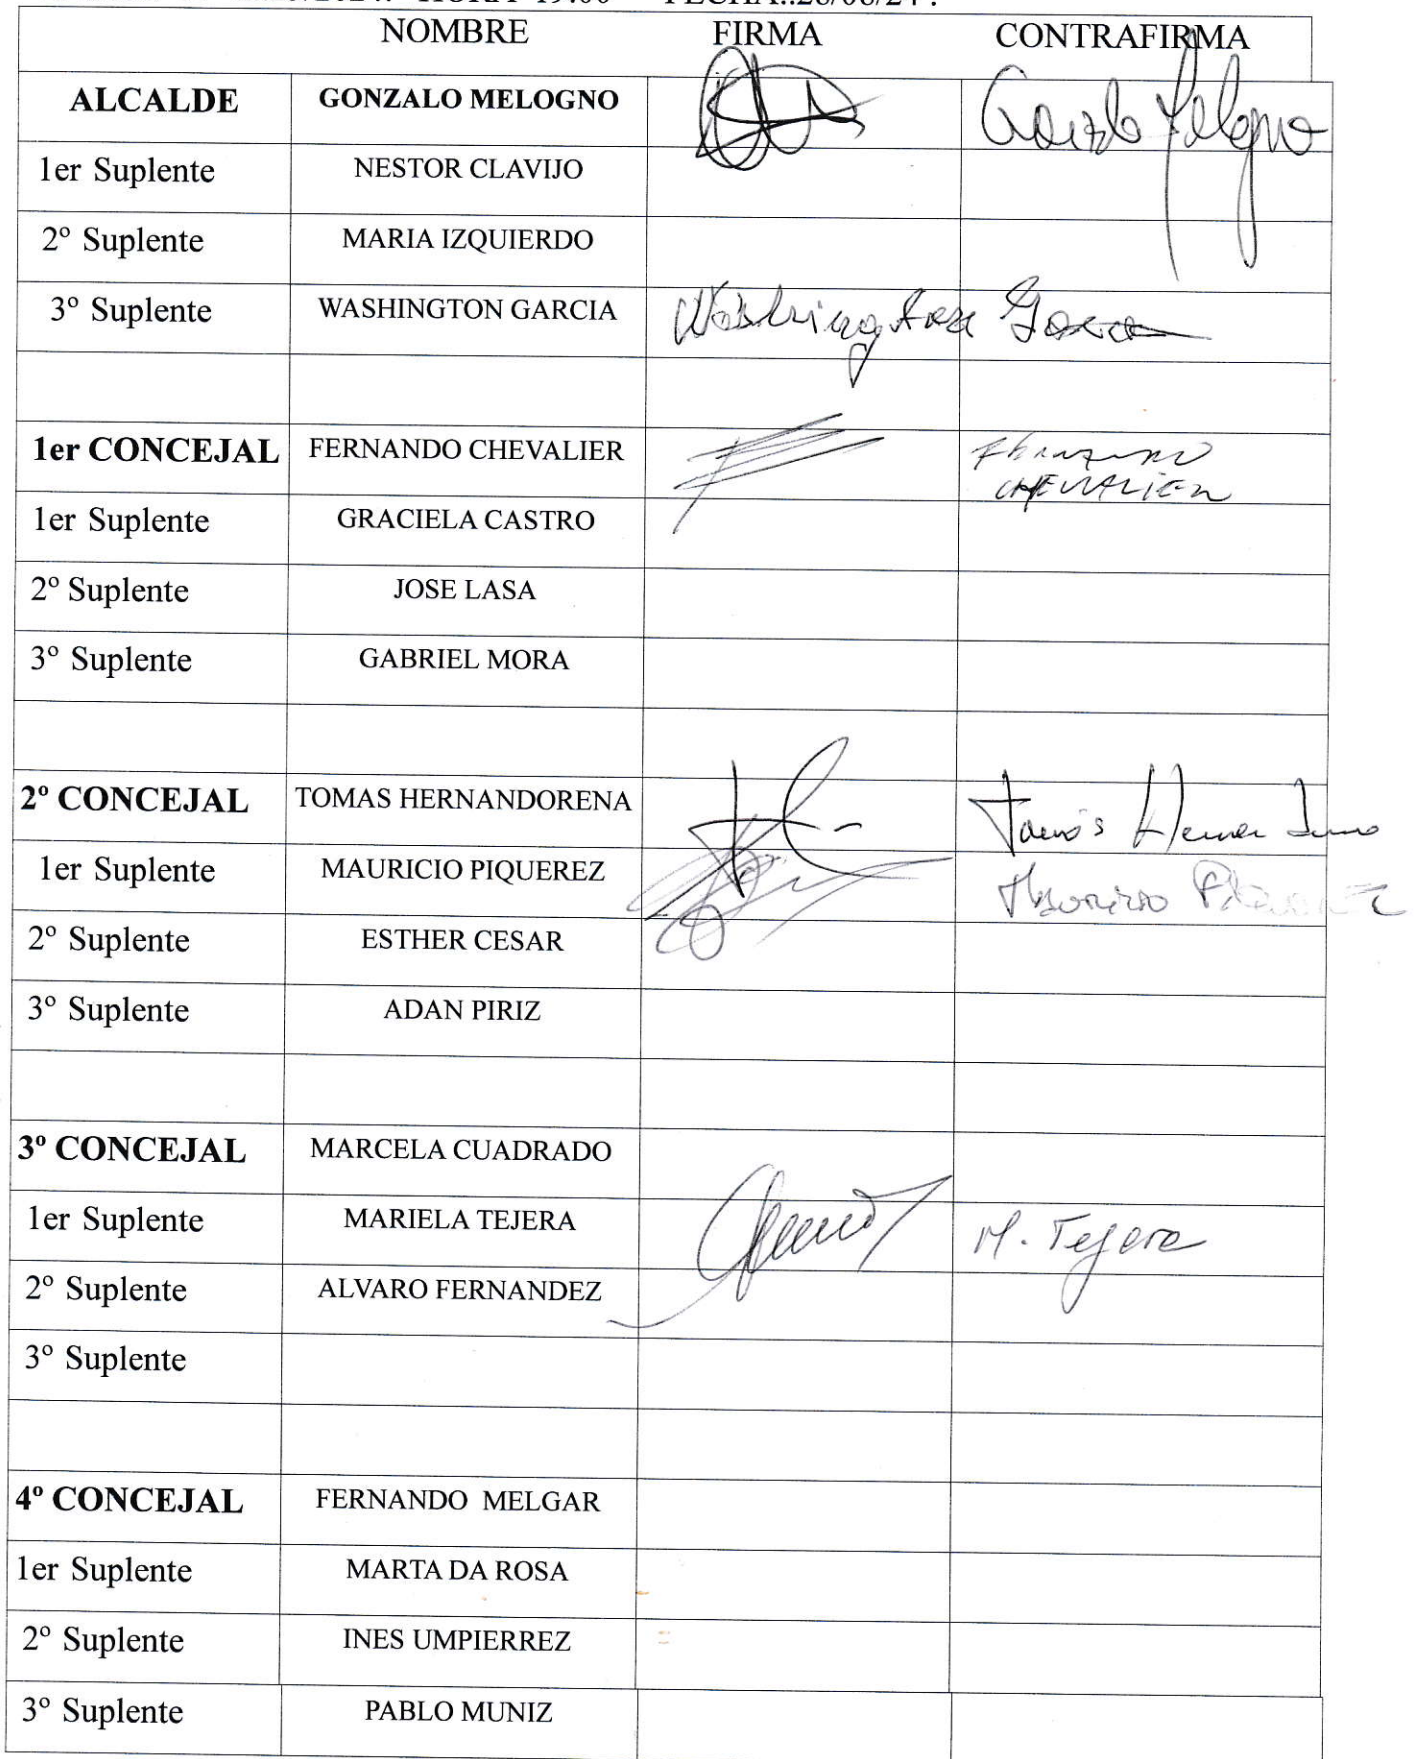 HORA 19:00 FECHA.:28/08/24 .
NOMBRE FIRMA CONTRAFIRMA
ALCALDE GONZALO MELOGNO
1er Suplente NESTOR CLAVIJO
2º Suplente MARIA IZQUIERDO
3º Suplente WASHINGTON GARCIA Washington Garcia
1er CONCEJAL FERNANDO CHEVALIER Fernando
CHEVALIER
1er Suplente GRACIELA CASTRO
2º Suplente JOSE LASA
3º Suplente GABRIEL MORA
2º CONCEJAL TOMAS HERNANDORENA Tomás
1er Suplente MAURICIO PIQUEREZ Mauricio
2º Suplente ESTHER CESAR
3º Suplente ADAN PIRIZ
3º CONCEJAL MARCELA CUADRADO
1er Suplente MARIELA TEJERA M. Tejera
2º Suplente ALVARO FERNANDEZ
3º Suplente
4º CONCEJAL FERNANDO MELGAR
1er Suplente MARTA DA ROSA
2º Suplente INES UMPIERREZ
3º Suplente PABLO MUNIZ